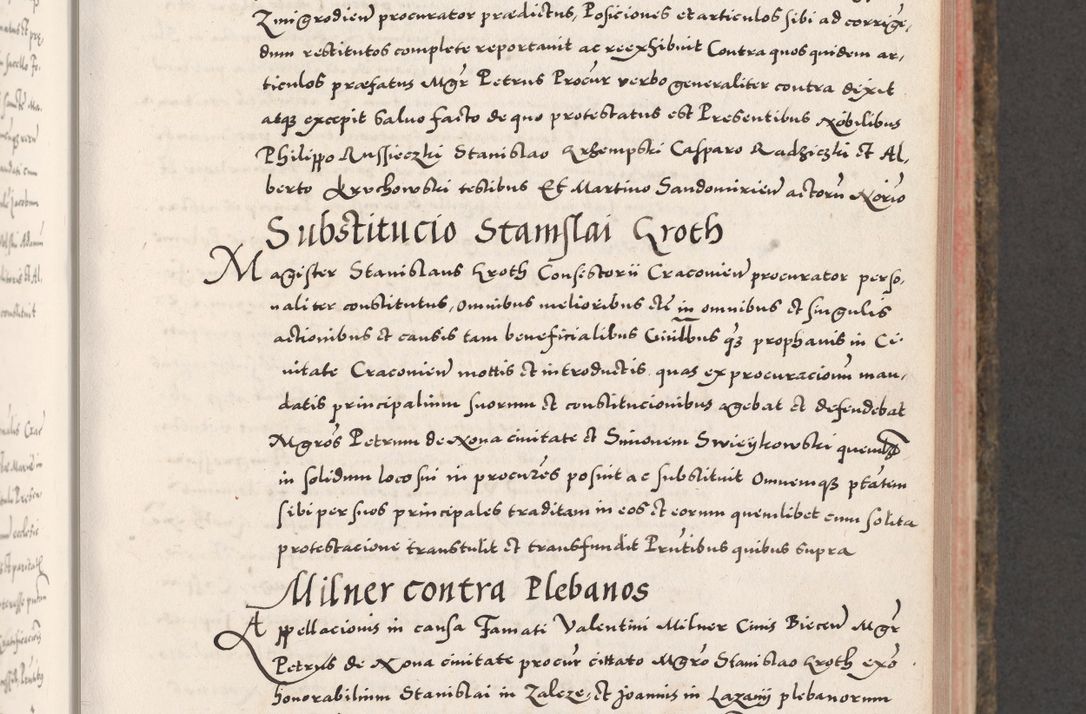 Zmigrodien procurator prædictus, Posiciones et articulos sibi ad corrige,
dum restitutos complete reportauit ac reexhibuit Contra quos quidem ar,
ticulos præfatus Mgr Petrus Procur verbo generaliter contra dixit
atq3 excepit Saluo facto de quo protestatus est Presentibus Nobilibus
Philippo Russieczki Stanislao Krzempski Casparo Radziczki et Al,
berto Krychowski testibus Et Martino Sandomirien actorũ Norio
Substitucio Stanislai Kroth
Magister Stanislaus Kroth Consistorii Cracouien procurator perso,
naliter constitutus, omnibus melioribus etc in omnibus et singulis
actionibus et causis tam beneficialibus Ciuilibus q3 prophanis in Ci,
uitate Cracouien mottis et introductis quas ex procuracionũ man,
datis principalium suorum et constitucionibus agebat et defendebat
Mgros Petrum de Noua ciuitate et Simonem Swieykowski quemlibet
in solidum loco sui in procures posuit ac substituit Omnemq3 ptatem
sibi per suos principales traditam in eos et eorum quemlibet cum solita
protestacione transtulit et transfundit Pntibus quibus supra
Milner contra Plebanos
Appellacionis in causa Famati Valentini Milner Ciuis Biecen Mgr
Petrus de Noua ciuitate procur cittato Mgro Stanislao Kroth exo
honorabilium Stanislai in Zaleze, et Joannis in Lazany plebanorum